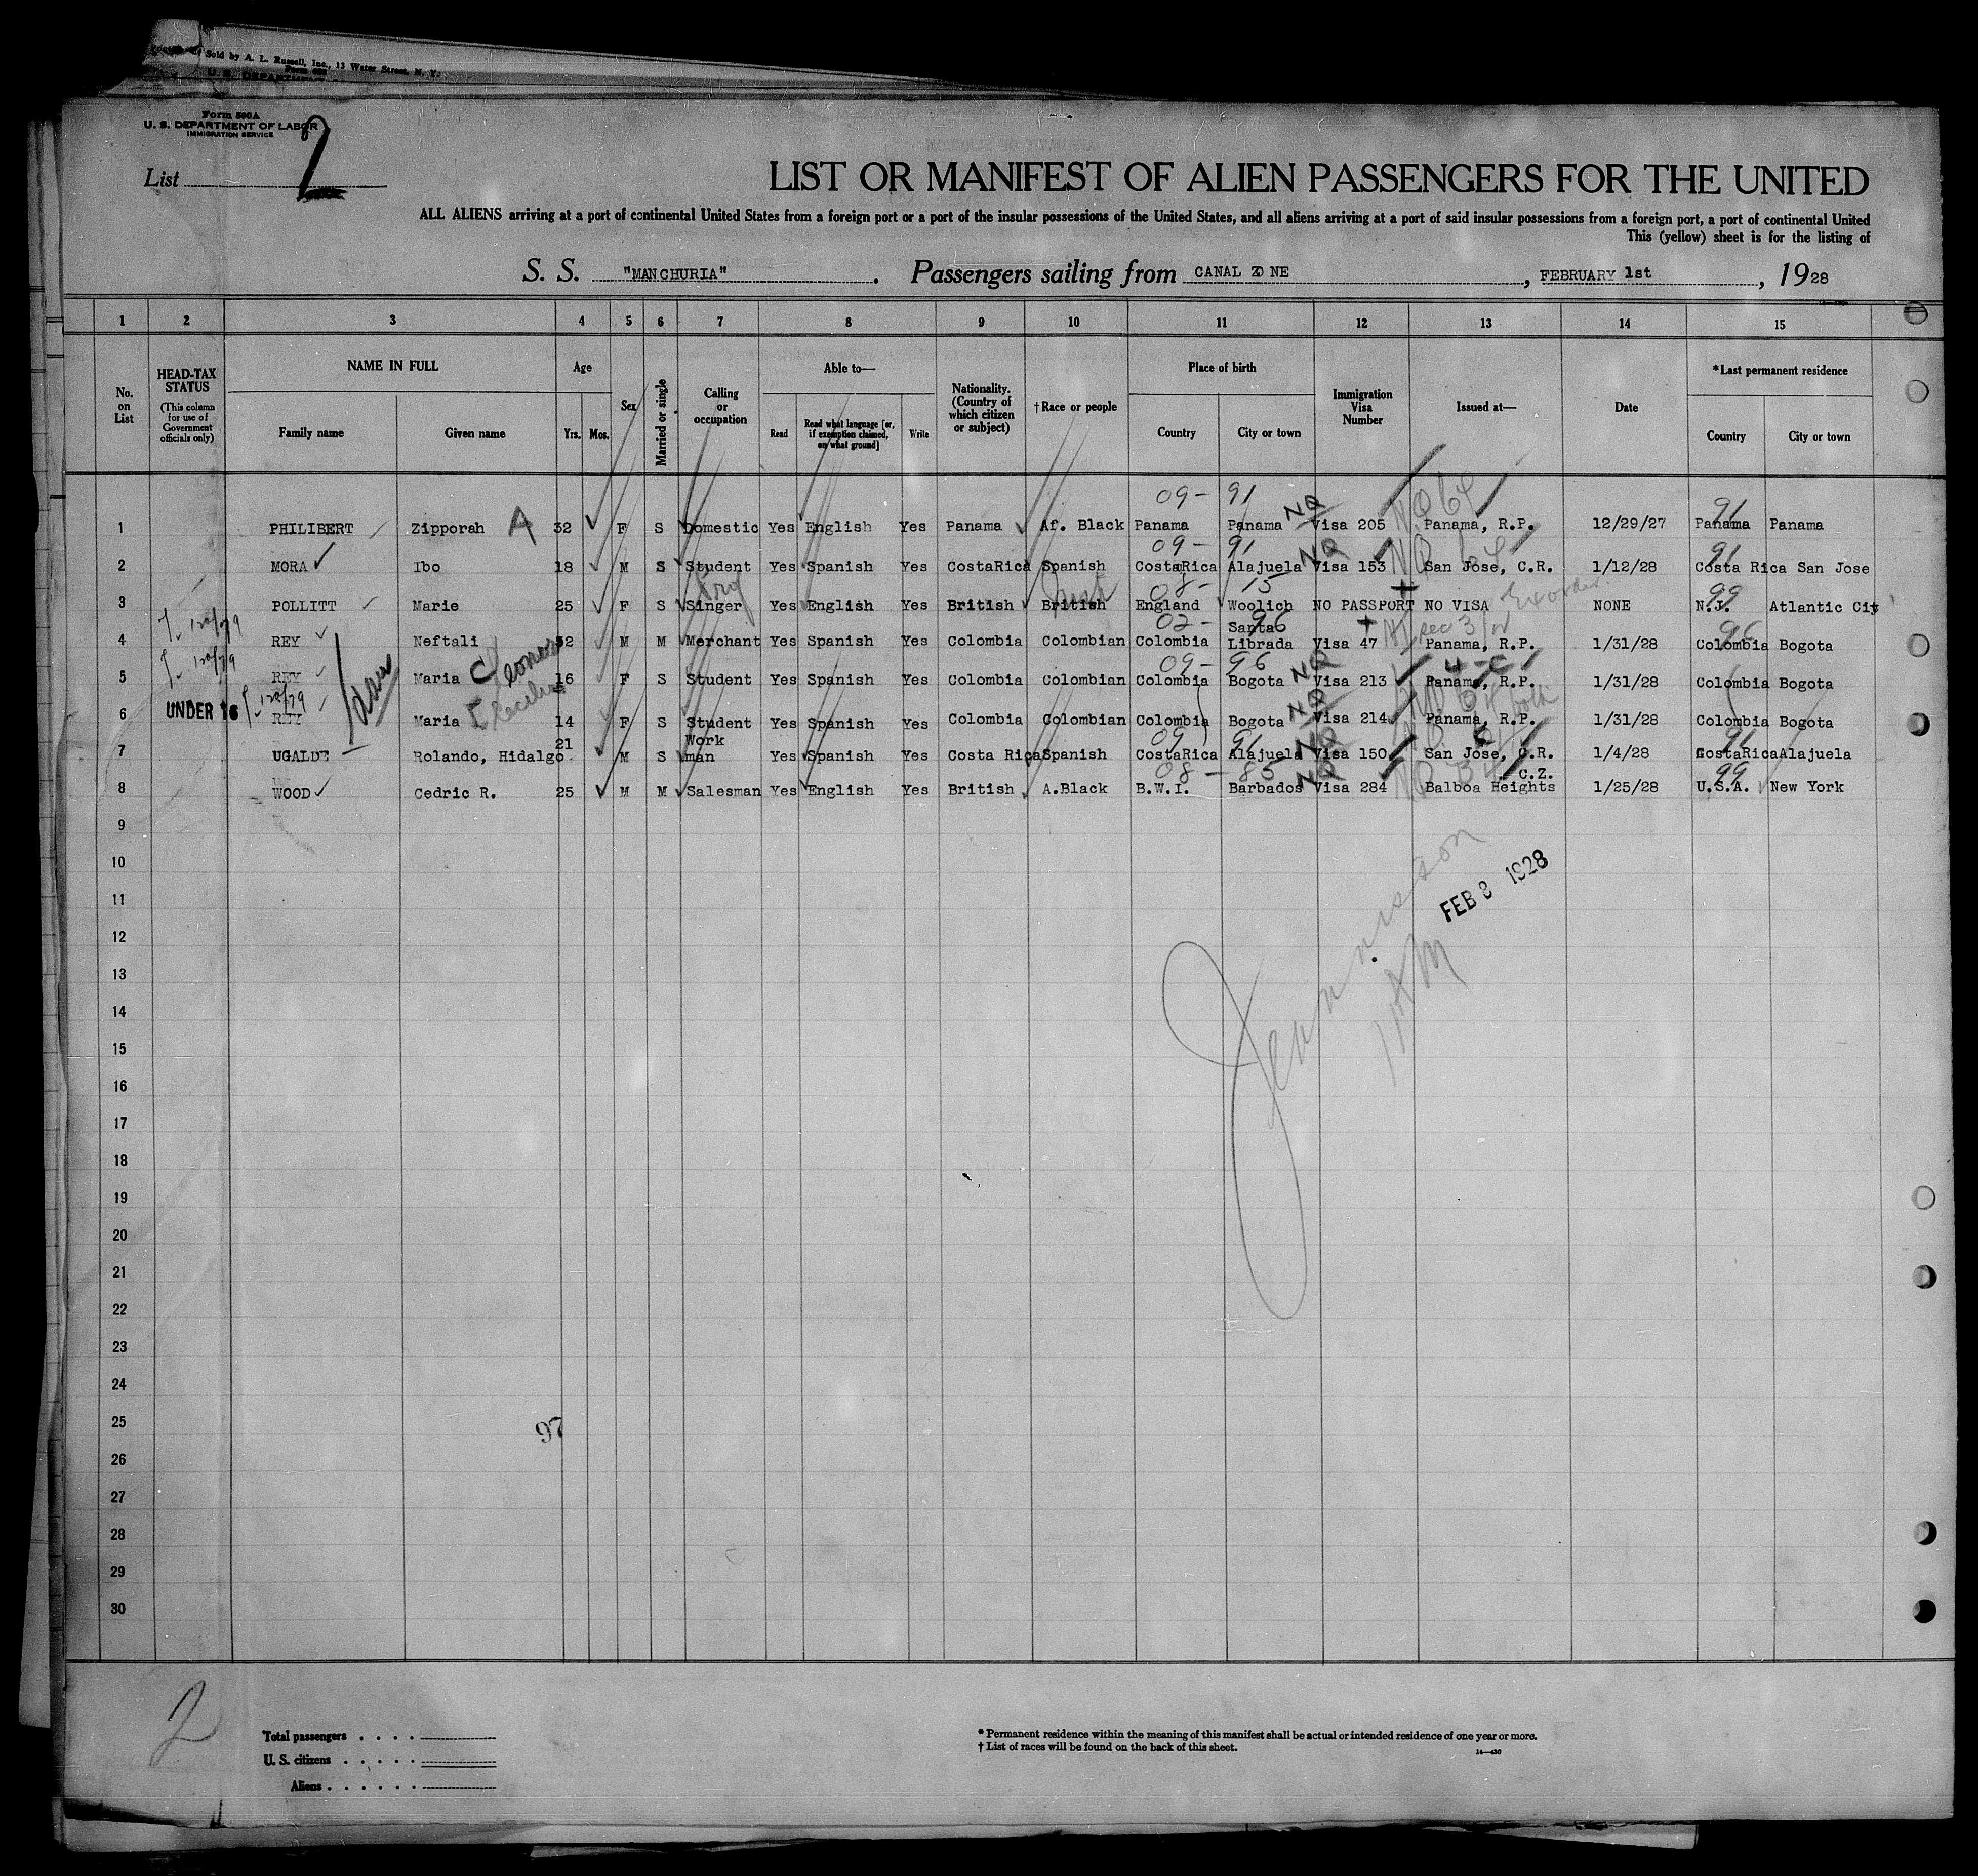 Sold by A. L. Russell, Inc., 13 Water Street, N. Y.
U. S. DEPARTMENT
Form 500A
U. S. DEPARTMENT OF LABOR
IMMIGRATION SERVICE
List 2
LIST OR MANIFEST OF ALIEN PASSENGERS FOR THE UNITED
ALL ALIENS arriving at a port of continental United States from a foreign port or a port of the insular possessions of the United States, and all aliens arriving at a port of said insular possessions from a foreign port, a port of continental United
This (yellow) sheet is for the listing of
S. S. "MANCHURIA". Passengers sailing from CANAL ZONE, FEBRUARY 1st, 1928
1 2 3 4 5 6 7 8 9 10 11 12 13 14 15
No. on List
HEAD-TAX STATUS (This column for use of Government officials only)
NAME IN FULL
Family name Given name
Age
Yrs. Mos.
Sex
Married or single
Calling or occupation
Able to—
Read Read what language [or, if exemption claimed, on what ground] Write
Nationality. (Country of which citizen or subject)
†Race or people
Place of birth
Country City or town
Immigration Visa Number
Issued at—
Date
*Last permanent residence
Country City or town
09- 91 NQ 91
1 PHILIBERT Zipporah A 32 F S Domestic Yes English Yes Panama Af. Black Panama Panama Visa 205 Panama, R.P. 12/29/27 Panama Panama
09- 91 NQ 91
2 MORA Ibo 18 M S Student Yes Spanish Yes CostaRica Spanish CostaRica Alajuela Visa 153 San Jose, C.R. 1/12/28 Costa Rica San Jose
08- 15 99
3 POLLITT Marie 25 F S Singer Yes English Yes British British England Woolich NO PASSPORT NO VISA NONE N.J. Atlantic City
02- 96 sec 3 96
4 REY Neftali 52 M M Merchant Yes Spanish Yes Colombia Colombian Colombia Santa Librada Visa 47 Panama, R.P. 1/31/28 Colombia Bogota
09- 96 NQ
5 REY Maria 16 F S Student Yes Spanish Yes Colombia Colombian Colombia Bogota Visa 213 Panama, R.P. 1/31/28 Colombia Bogota
NQ
6 UNDER 16 REY Maria 14 F S Student Yes Spanish Yes Colombia Colombian Colombia Bogota Visa 214 Panama, R.P. 1/31/28 Colombia Bogota
09 91 NQ 91
7 UGALDE Rolando, Hidalgo 21 M S Work man Yes Spanish Yes Costa Rica Spanish CostaRica Alajuela Visa 150 San Jose, C.R. 1/4/28 CostaRica Alajuela
08- 85 NQ 99
8 WOOD Cedric R. 25 M M Salesman Yes English Yes British A.Black B.W.I. Barbados Visa 284 Balboa Heights C.Z. 1/25/28 U.S.A. New York
9
10
11
FEB 8 1928
12
13
14
15
16
17
18
19
20
21
22
23
24
25
97
26
27
28
29
30
2
Total passengers
U. S. citizens
Aliens
* Permanent residence within the meaning of this manifest shall be actual or intended residence of one year or more.
† List of races will be found on the back of this sheet.
14—430